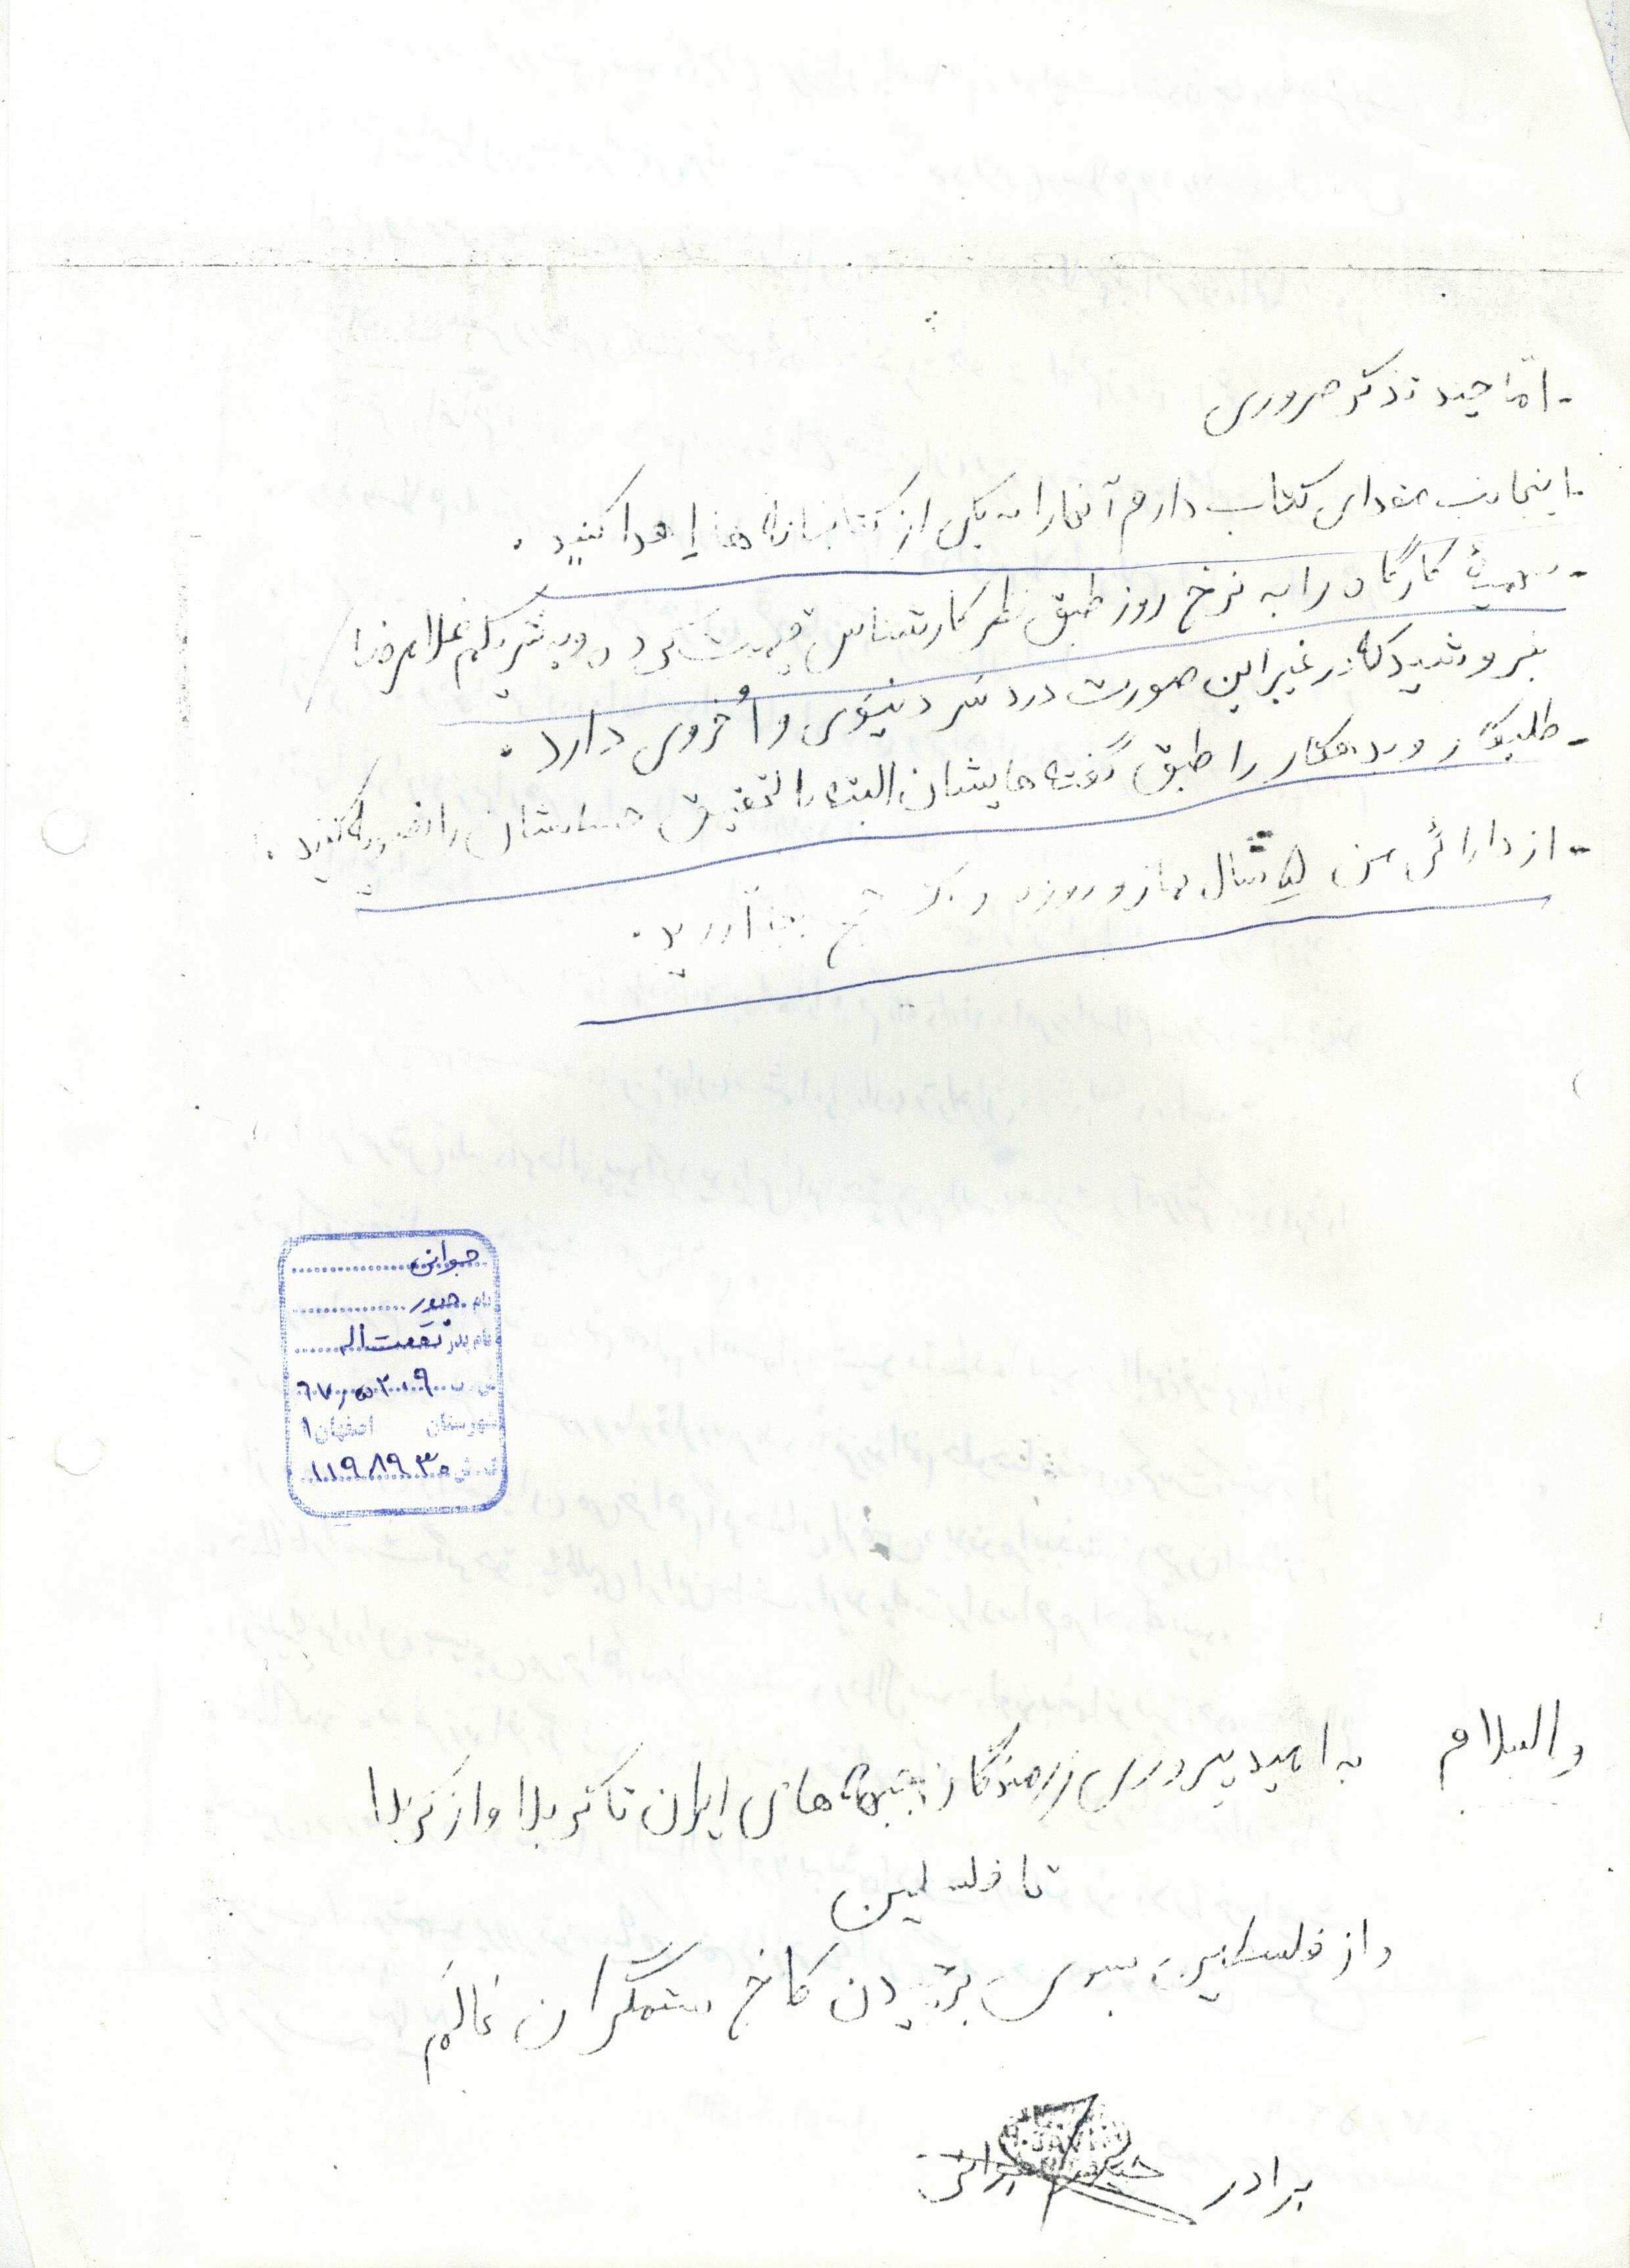 - امّا چند تذکر ضروری
- اینجانب مقداری کتاب دارم آنها را به یکی از کتابخانه ها إهدا کنید .
- سهمیهٔ کارگاه را به نرخ روز طبق نظر کارشناس قیمت کرده و به شریکم غلامرضا
بفروشید که در غیر این صورت دردسر دنیوی و اُخروی دارد .
- طلبکار و بدهکار را طبق گفته هایشان البته با تحقیق حسابشان را تصفیه کنید .
- از دارائی من ۵ سال نماز و روزه و یک حج بجا آورید .
جوانی
نام حیدر
نام پدر نعمت اله
۶۷٫۵٫۲۰۹
شهرستان اصفهان ۱
۱۱۹۸۹۳۰
والسلام به امید پیروزی رزمندگان جبهه های ایران تا کربلا و از کربلا
تا فلسطین
و از فلسطین بسوی برچیدن کاخ ستمگران عالَم
برادر حیدر جوانی